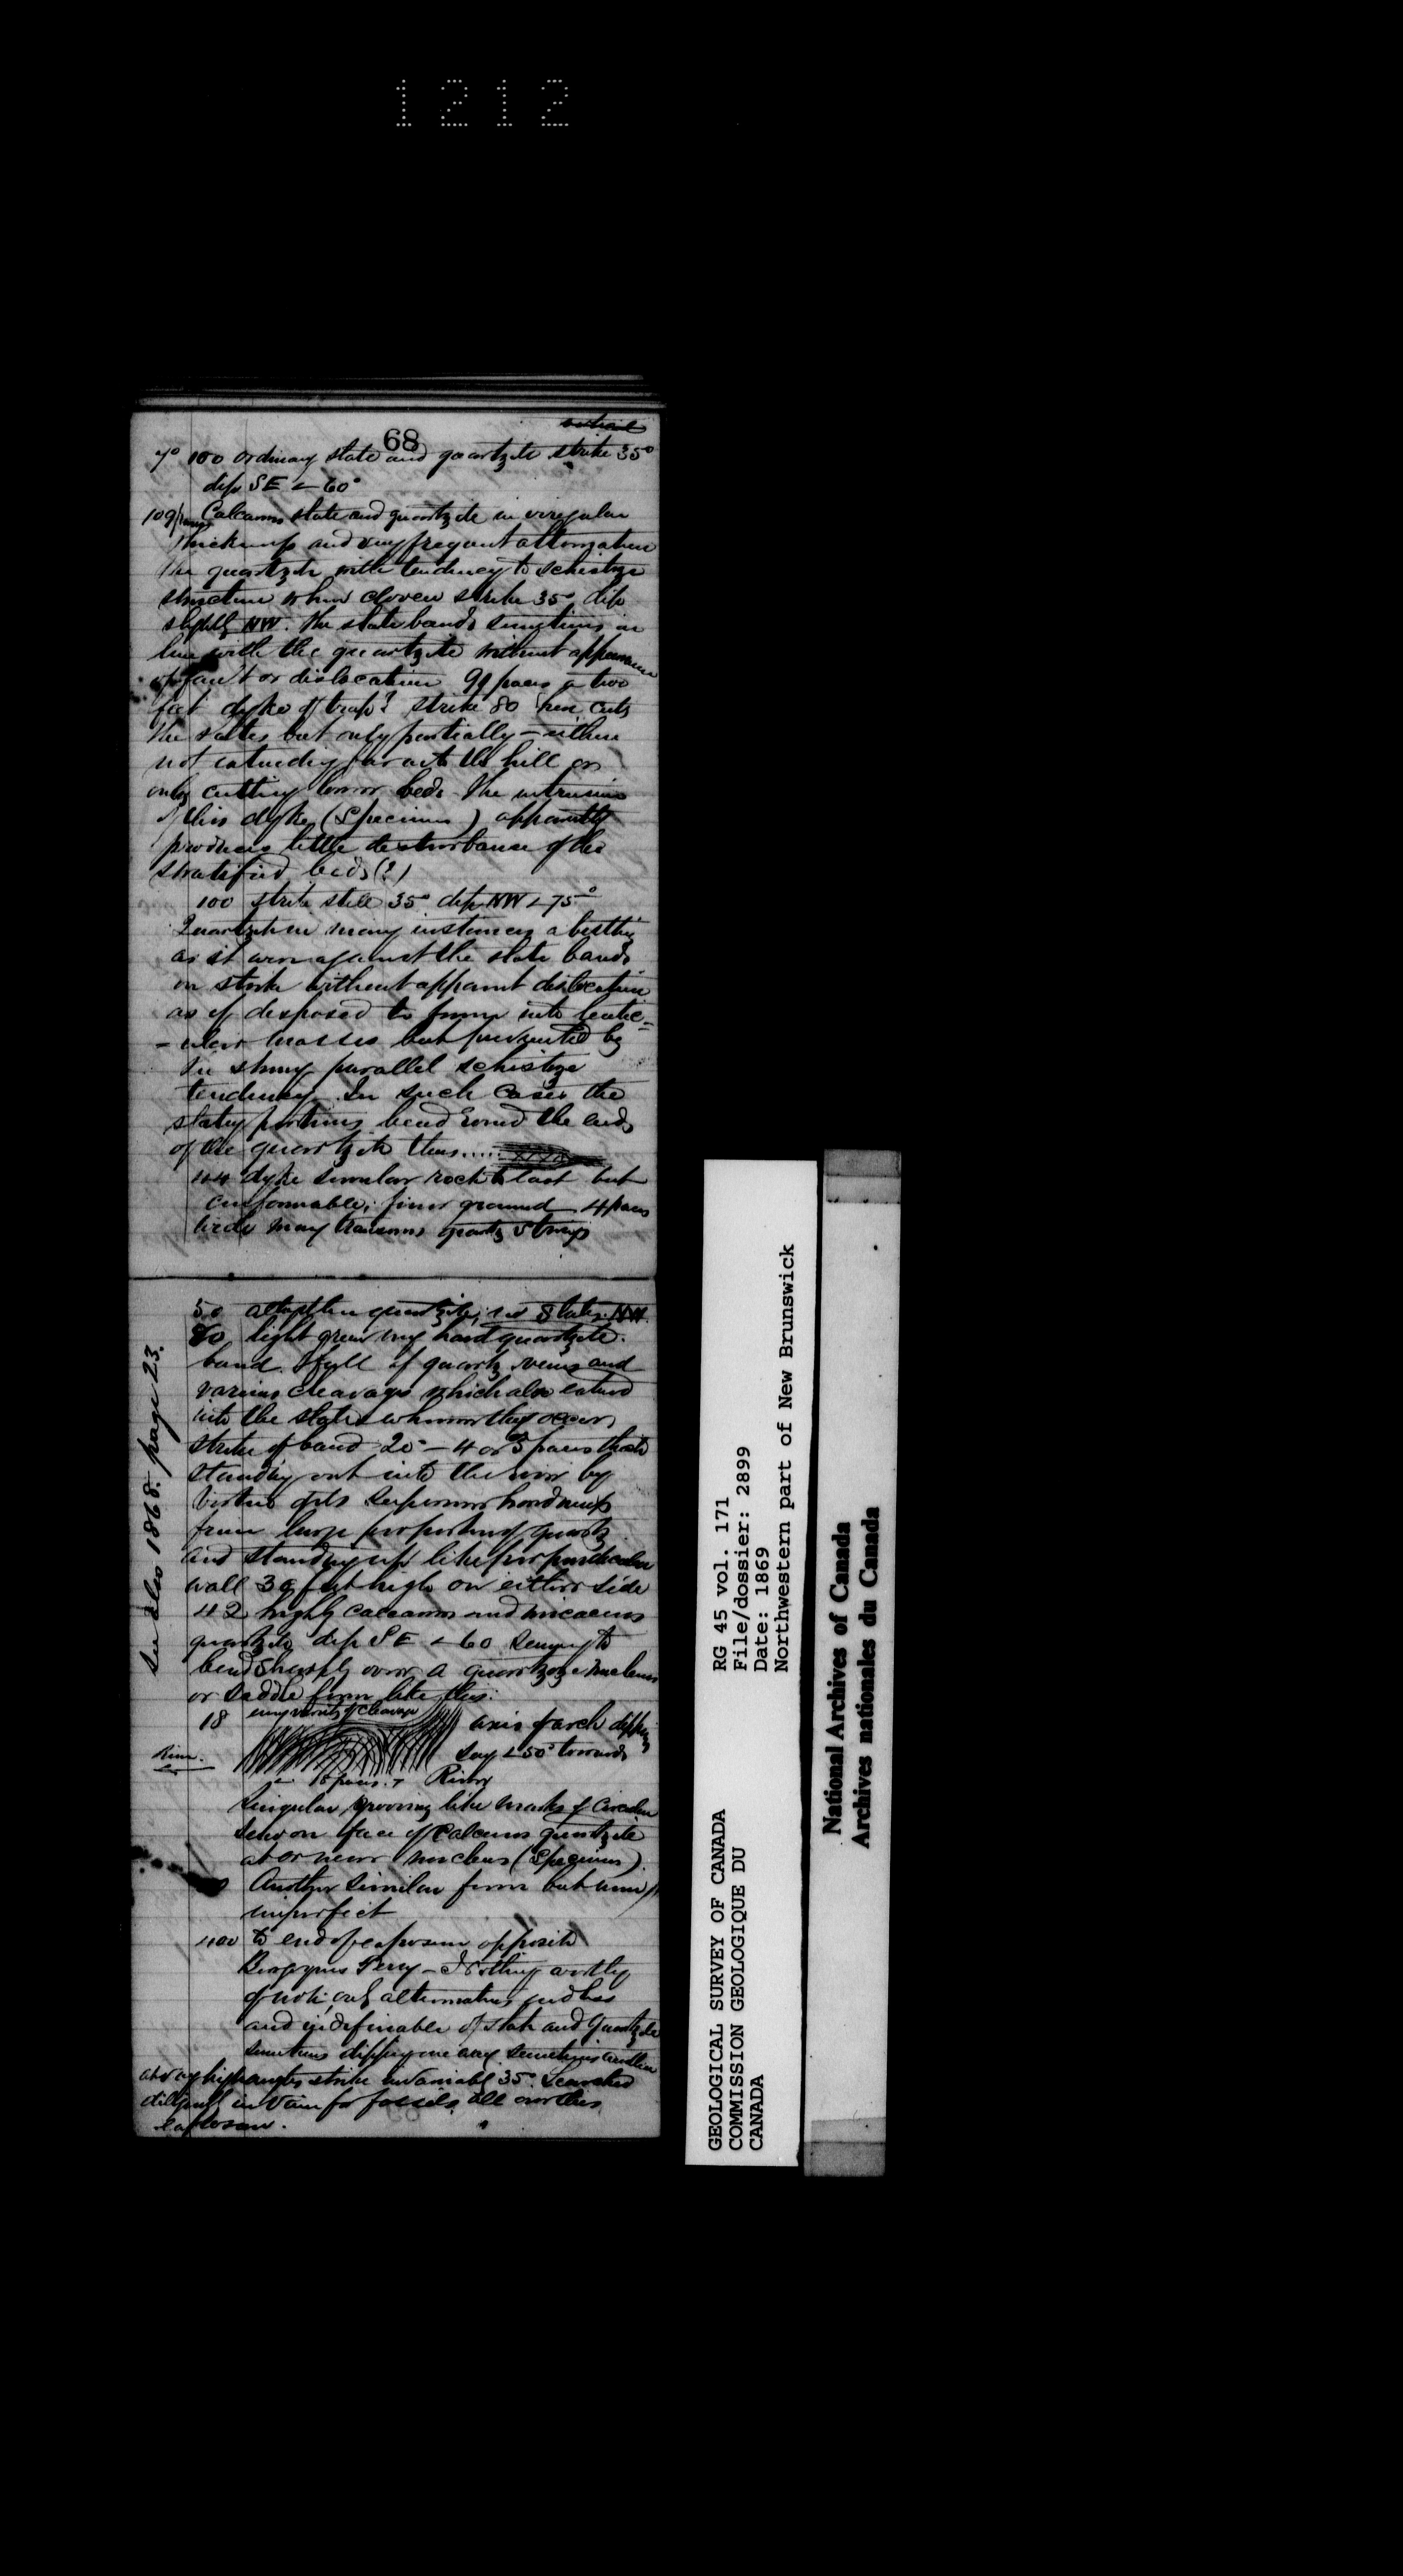 1212
68
vertical
70 100 ordinary slate and quartzite strike 35°
dip SE < 60°
109 paces Calcareous slate and quartzite in irregular
thickness and very frequent alternation
the quartzite with tendency to schistoze
structure when cloven strike 35° dip
slightly NW. The slate bands sometimes in
line with the quartzite without appearance
of fault or dislocation 99 paces a two
feet dyke of trap? strike 80 here cuts
the slates but only partially – either
not extending far into the hill or
only cutting lower beds. The intrusion
of this dyke (Specimen) apparently
produces little disturbance of the
stratified beds (?)
100 strike still 35° dip NW < 75°
Quartzite in many instances abutting
as it were against the slate bands
on strike without apparent dislocation
as if disposed to form into lentic-
-ular masses but prevented by
the strong parallel schistoze
tendency. In such cases the
slaty portions bend round the ends
of the quartzite thus.....
44 dyke similar rock to last but
conformable; finer grained 4 paces
wide many transverse quartz strings
50 altogether quartzite; no slates NW.
80 light green very hard quartzite
band full of quartz veins and
various cleavages which also extend
into the slates whenever they occur
strike of band 20° – 4 or 5 paces thick
standing out into the river by
virtue of its superior hardness
from large proportion of quartz
and standing up like perpendicular
wall 30 feet high on either side
42 highly calcareous and micaceous
quartzite dip SE < 60 seeming to
bend sharply over a quartzoze nucleus
or saddle form like this:
18 every variety of cleavage
axis of arch dipping
say < 50° towards
River
River.
18 paces.
Singular grooving like marks of circular
saw on face of calcareous quartzite
at or near nucleus (Specimen).
Another similar form but
imperfect
400 to end of exposure opposite
Ferry – Nothing worthy
of note, only alternations endless
and indefinable of slate and quartzite
sometimes dipping one way sometimes another
at very high angles strike invariably 35°. Searched
diligently in vain for fossils all over this
exposure.
See also 1868. page 23.
GEOLOGICAL SURVEY OF CANADA
COMMISSION GEOLOGIQUE DU
CANADA
RG 45 vol. 171
File/dossier: 2899
Date: 1869
Northwestern part of New Brunswick
National Archives of Canada
Archives nationales du Canada